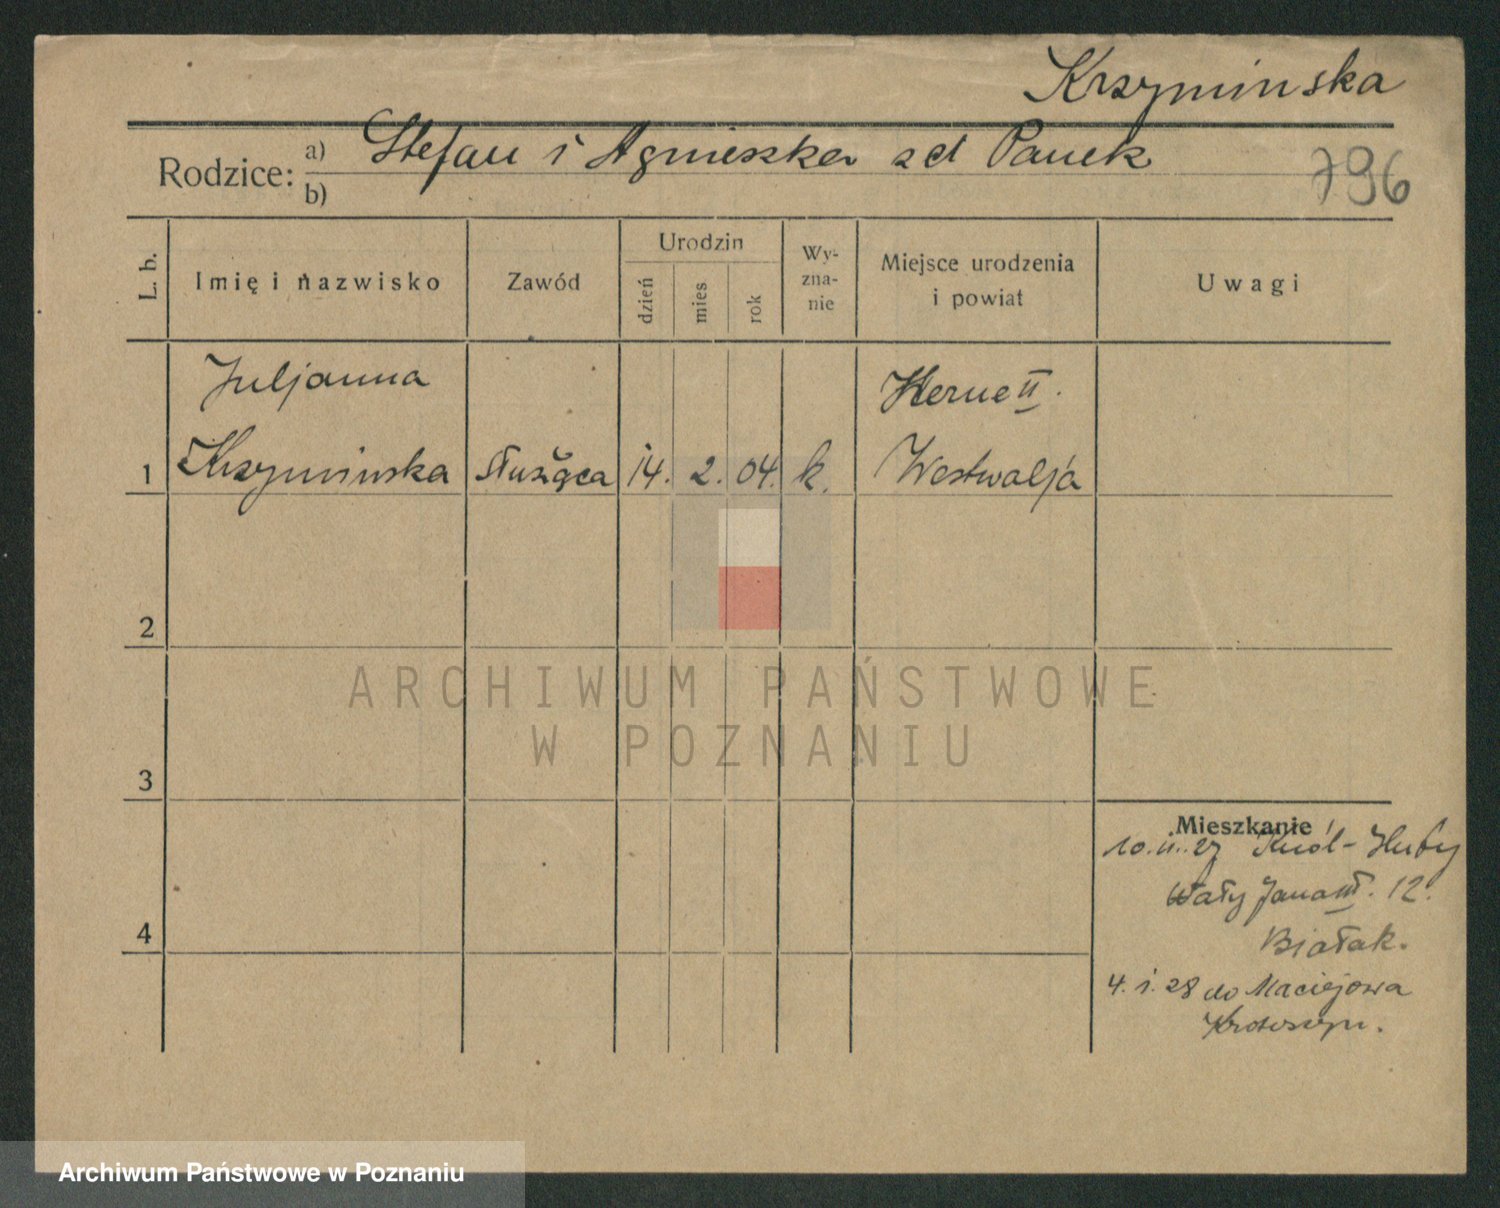 Krzyminska
Rodzice: a) Stefan i Agnieszka z d Panek
b)
796
L. b.
Imię i nazwisko
Zawód
Urodzin
dzień
mies
rok
Wy-
zna-
nie
Miejsce urodzenia
i powiat
Uwagi
Juljanna
Herne II.
1 Krzyminska służąca 14. 2. 04. k. Westwalja
2
3
4
Mieszkanie
10. 11. 27 Król-Huby
Wały Jana III. 12.
Białak.
4. 1. 28 do Maciejowa
Krotoszyn.
ARCHIWUM PAŃSTWOWE
W POZNANIU
Archiwum Państwowe w Poznaniu